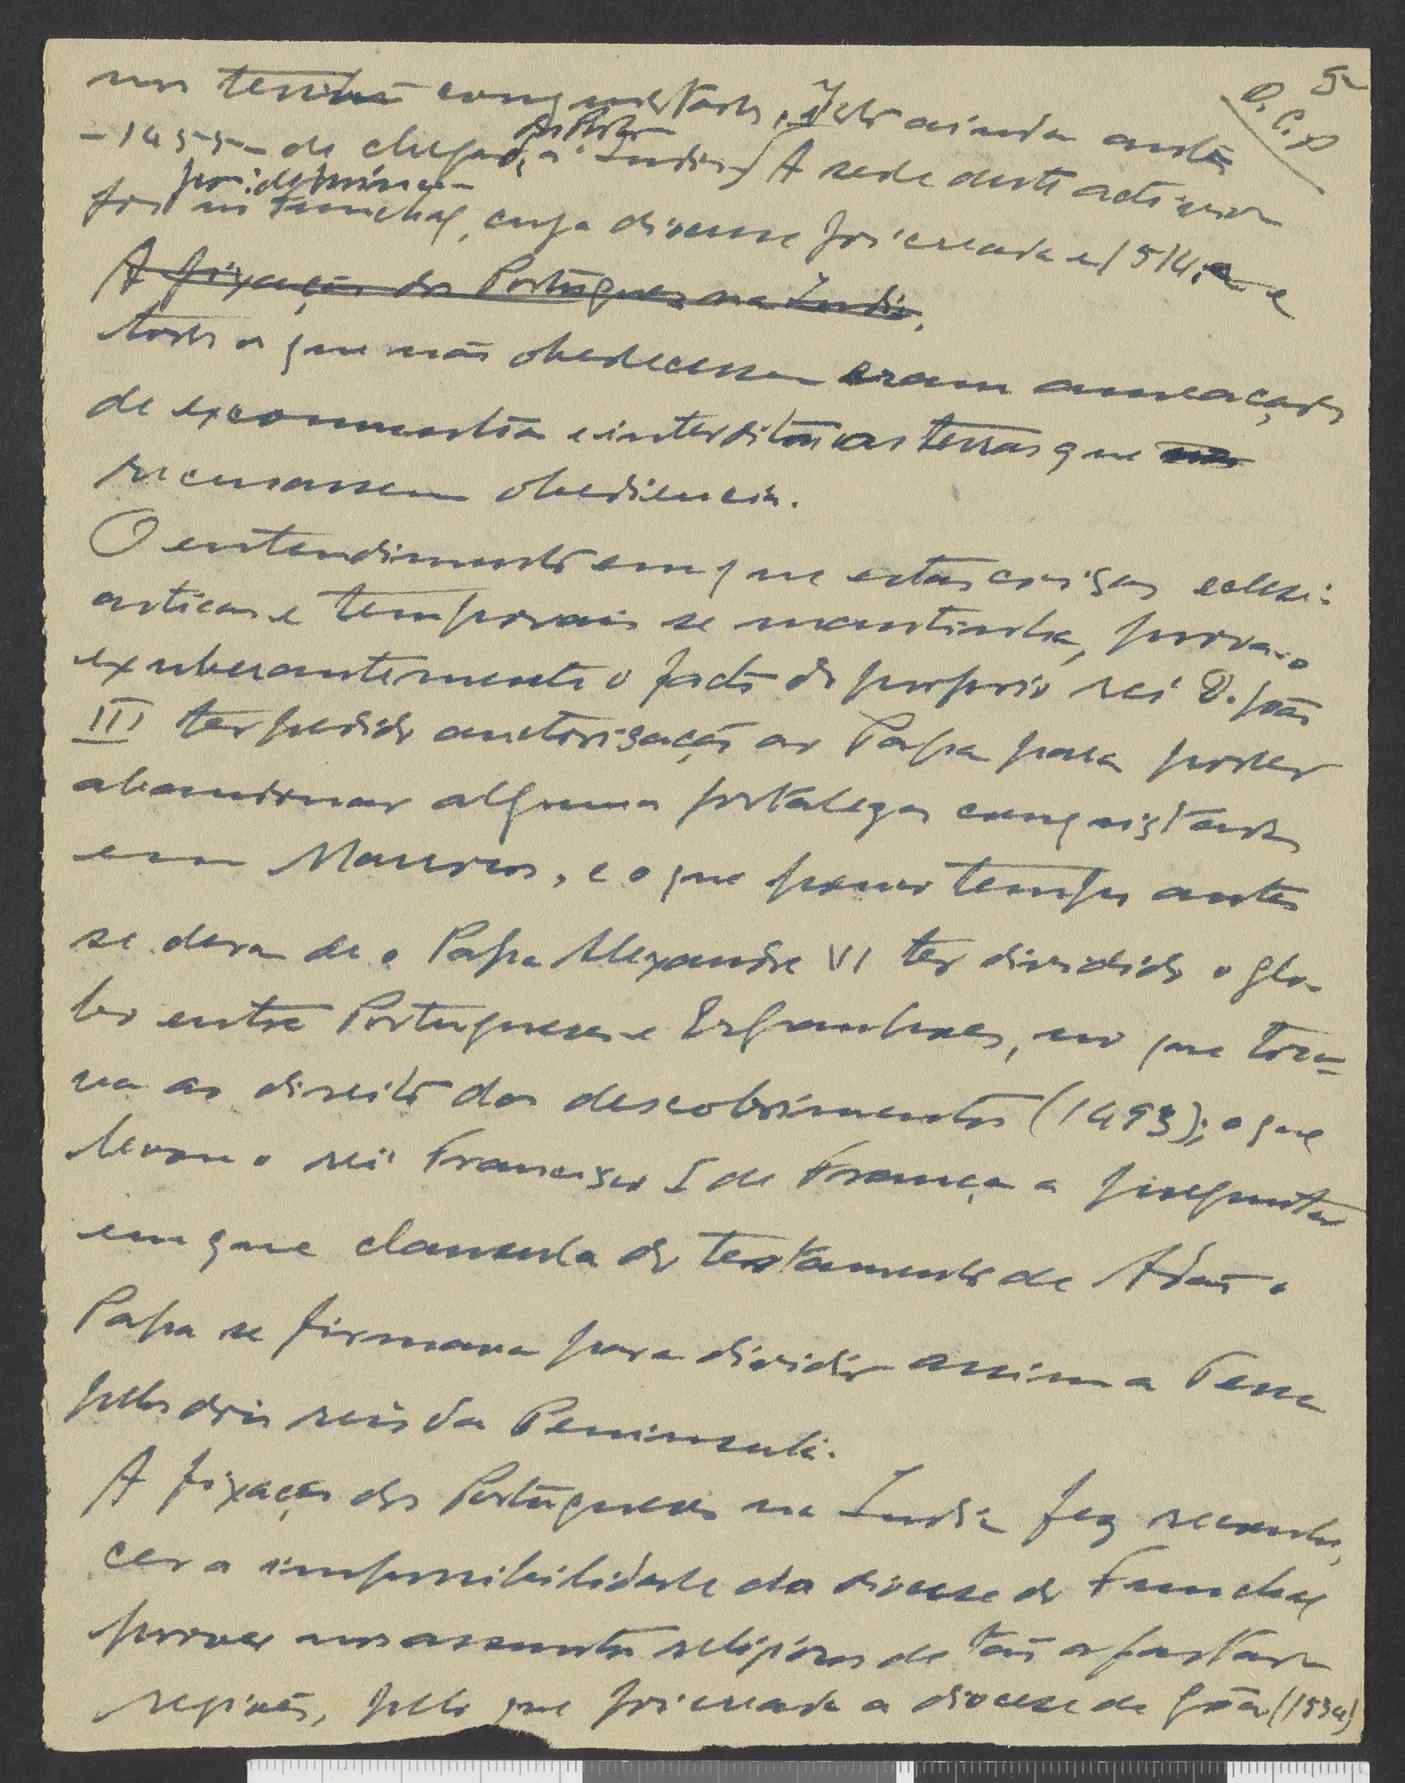 5
nos conquistados, isto ainda antes
-1455- da chegada dos Portu. á India. A sede deste acti
foi no principio Funchal, cuja diocese foi creada e/ 514, e
A fixação dos Portugueses na India,
todos os que não obedecessem eram ameaçados
de excomunhão e interditar as terras que não
recusassem obediencia.
O entendimento em que estas coisas eclesi-
asticas e temporais se mantinha, prova-o
exuberantemente o facto do proprio rei D. João
III ter pedido auctorisação ao Papa para poder
abandonar alguma fortalezas conquistadas
em Marrocos, e o que pouco tempo antes
se dera de o Papa Alexandre VI ter dividido o glo-
bo entre Portugueses e Espanhoes, no que toca-
va ao direito dos descobrimentos (1493); o que
levou o rei Francisco I de França a preguntar
em que clausula do testamento de Adão o
Papa se firmava para dividir assim a Terra
pelos dois reis da Peninsula.
A fixação dos Portugueses na India fez reconhe-
cer a impossibilidade da diocese do Funchal
prover nos assuntos religiosos de tão afastada
região, pelo que foi creada a diocese de Gôa (1534)